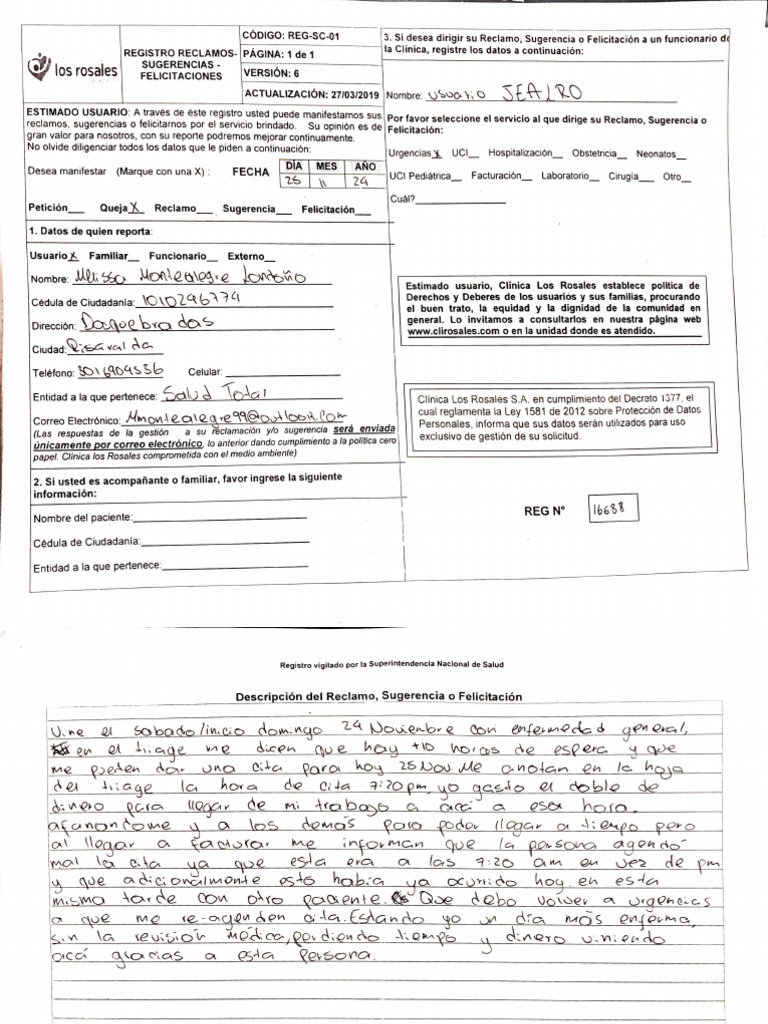 los rosales
REGISTRO RECLAMOS-
SUGERENCIAS -
FELICITACIONES
CÓDIGO: REG-SC-01
PÁGINA: 1 de 1
VERSIÓN: 6
ACTUALIZACIÓN: 27/03/2019
ESTIMADO USUARIO: A través de éste registro usted puede manifestarnos sus
reclamos, sugerencias o felicitarnos por el servicio brindado. Su opinión es de
gran valor para nosotros, con su reporte podremos mejorar continuamente.
No olvide diligenciar todos los datos que le piden a continuación:
Desea manifestar (Marque con una X) : FECHA DÍA MES AÑO
25 11 24
Petición__ Queja X Reclamo__ Sugerencia__ Felicitación__
1. Datos de quien reporta:
Usuario x Familiar__ Funcionario__ Externo__
Nombre: Melissa Montealegre Londoño
Cédula de Ciudadanía: 1010246774
Dirección: Dosquebradas
Ciudad: Risaralda
Teléfono: 3016904536 Celular:
Entidad a la que pertenece: Salud Total
Correo Electrónico: Mmontealegre99@outlook.com
(Las respuestas de la gestión a su reclamación y/o sugerencia será enviada
únicamente por correo electrónico, lo anterior dando cumplimiento a la política cero
papel. Clínica los Rosales comprometida con el medio ambiente)
2. Si usted es acompañante o familiar, favor ingrese la siguiente
información:
Nombre del paciente:
Cédula de Ciudadanía:
Entidad a la que pertenece:
3. Si desea dirigir su Reclamo, Sugerencia o Felicitación a un funcionario de
la Clínica, registre los datos a continuación:
Nombre: usuario JEALRO
Por favor seleccione el servicio al que dirige su Reclamo, Sugerencia o
Felicitación:
Urgencias x UCI__ Hospitalización__ Obstetricia__ Neonatos__
UCI Pediátrica__ Facturación__ Laboratorio__ Cirugía__ Otro__
Cuál?
Estimado usuario, Clínica Los Rosales establece política de
Derechos y Deberes de los usuarios y sus familias, procurando
el buen trato, la equidad y la dignidad de la comunidad en
general. Lo invitamos a consultarlos en nuestra página web
www.clirosales.com o en la unidad donde es atendido.
Clínica Los Rosales S.A. en cumplimiento del Decreto 1377, el
cual reglamenta la Ley 1581 de 2012 sobre Protección de Datos
Personales, informa que sus datos serán utilizados para uso
exclusivo de gestión de su solicitud.
REG N° 16688
Registro vigilado por la Superintendencia Nacional de Salud
Descripción del Reclamo, Sugerencia o Felicitación
Vine el sabado/inicio domingo 24 Noviembre con enfermedad general,
en el triage me dicen que hay +10 horas de espera y que
me pueden dar una cita para hoy 25 Nov. Me anotan en la hoja
del triage la hora de cita 7:20pm, yo gasto el doble de
dinero para llegar de mi trabajo a acá a esa hora,
afanandome y a los demás para poder llegar a tiempo pero
al llegar a facturar me informan que la persona agendó
mal la cita ya que esta era a las 7:20 am en vez de pm
y que adicionalmente esto había ya ocurrido hoy en esta
misma tarde con otro paciente. Que debo volver a urgencias
a que me re-agenden cita. Estando yo un día más enferma,
sin la revisión médica, perdiendo tiempo y dinero viniendo
acá gracias a esta persona.